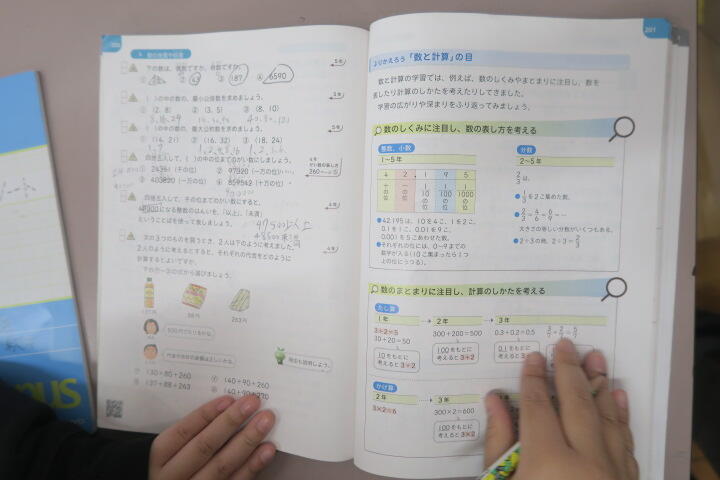 5 数の性質や計算
下の数は、偶数ですか、奇数ですか。
5年
② 43 ③ 187 ④ 6590
( )の中の数の、最小公倍数を求めましょう。
5年
① (2, 8) ② (3, 5) ③ (8, 10)
8, 16, 24
( )の中の数の、最大公約数を求めましょう。
5年
① (14, 21) ② (16, 32) ③ (18, 24)
四捨五入して、( )の中の位までのがい数にしましょう。
4年
がい数の表し方
260ページ
① 24361 (千の位) ② 97320 (一万の位)
③ 403820 (一万の位) ④ 859542 (十万の位)
四捨五入して、千の位までのがい数にすると、
48000になる整数のはんいを、「以上」、「未満」
ということばを使って表しましょう。
4年
47500以上
48500未満
次の3つのものを買うとき、2人は下のように考えました。
4年
2人のように考えるとすると、それぞれの代金をどのように
計算するとよいですか。
下の⑦~②の式から選びましょう。
137円
88円
263円
500円でたりるかな。
代金や合計の金額は正しいかな。
理由も説明しよう。
130+80+260
140+90+260
137+88+263
140+90+270
201
ふりかえろう「数と計算」の目
数と計算の学習では、例えば、数のしくみやまとまりに注目し、数を
表したり計算のしかたを考えたりしてきました。
学習の広がりや深まりをふり返ってみましょう。
数のしくみに注目し、数の表し方を考える
整数、小数
1~5年
4 2 . 1 9 5
十の位 一の位 1/10の位 1/100の位 1/1000の位
●42.195は、10を4こ、1を2こ、
0.1を1こ、0.01を9こ、
0.001を5こあわせた数。
●それぞれの位には、0~9までの
数字が入る(10こ集まったら1つ
上の位にうつる)。
分数
2~5年
2/3は、
●1/3を2こ集めた数。
●2/3=4/6=6/9=…
大きさの等しい分数がいくつもある。
●2÷3の商。2÷3=2/3
数のまとまりに注目し、計算のしかたを考える
たし算
1年 → 2年 → 3年
3+2=5
30+20=50
10をもとに
考えると3+2
300+200=500
100をもとに
考えると3+2
0.3+0.2=0.5
0.1をもとに
考えると3+2
かけ算
2年 → 3年
3×2=6
300×2=600
100をもとに
考えると3×2